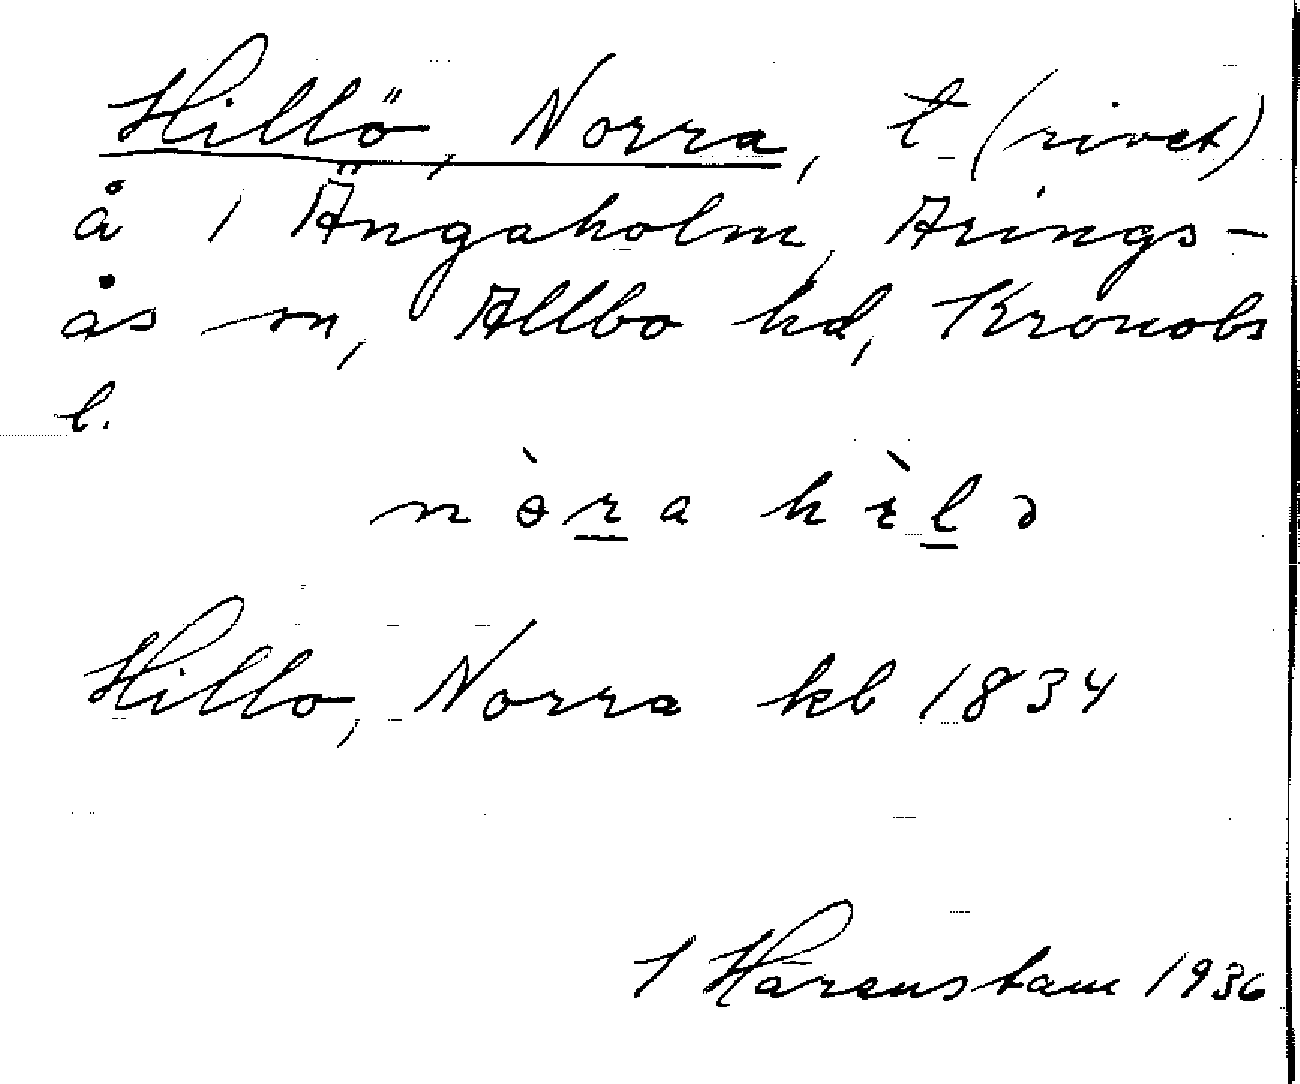 Hillö, Norra, t (rivet)
å 1 Ängaholm, Arings-
ås sn, Allbo hd, Kronobs
l.
nɵ̀ra hìlɔ
Hillo, Norra kb 1834
I Hårenstam 1936